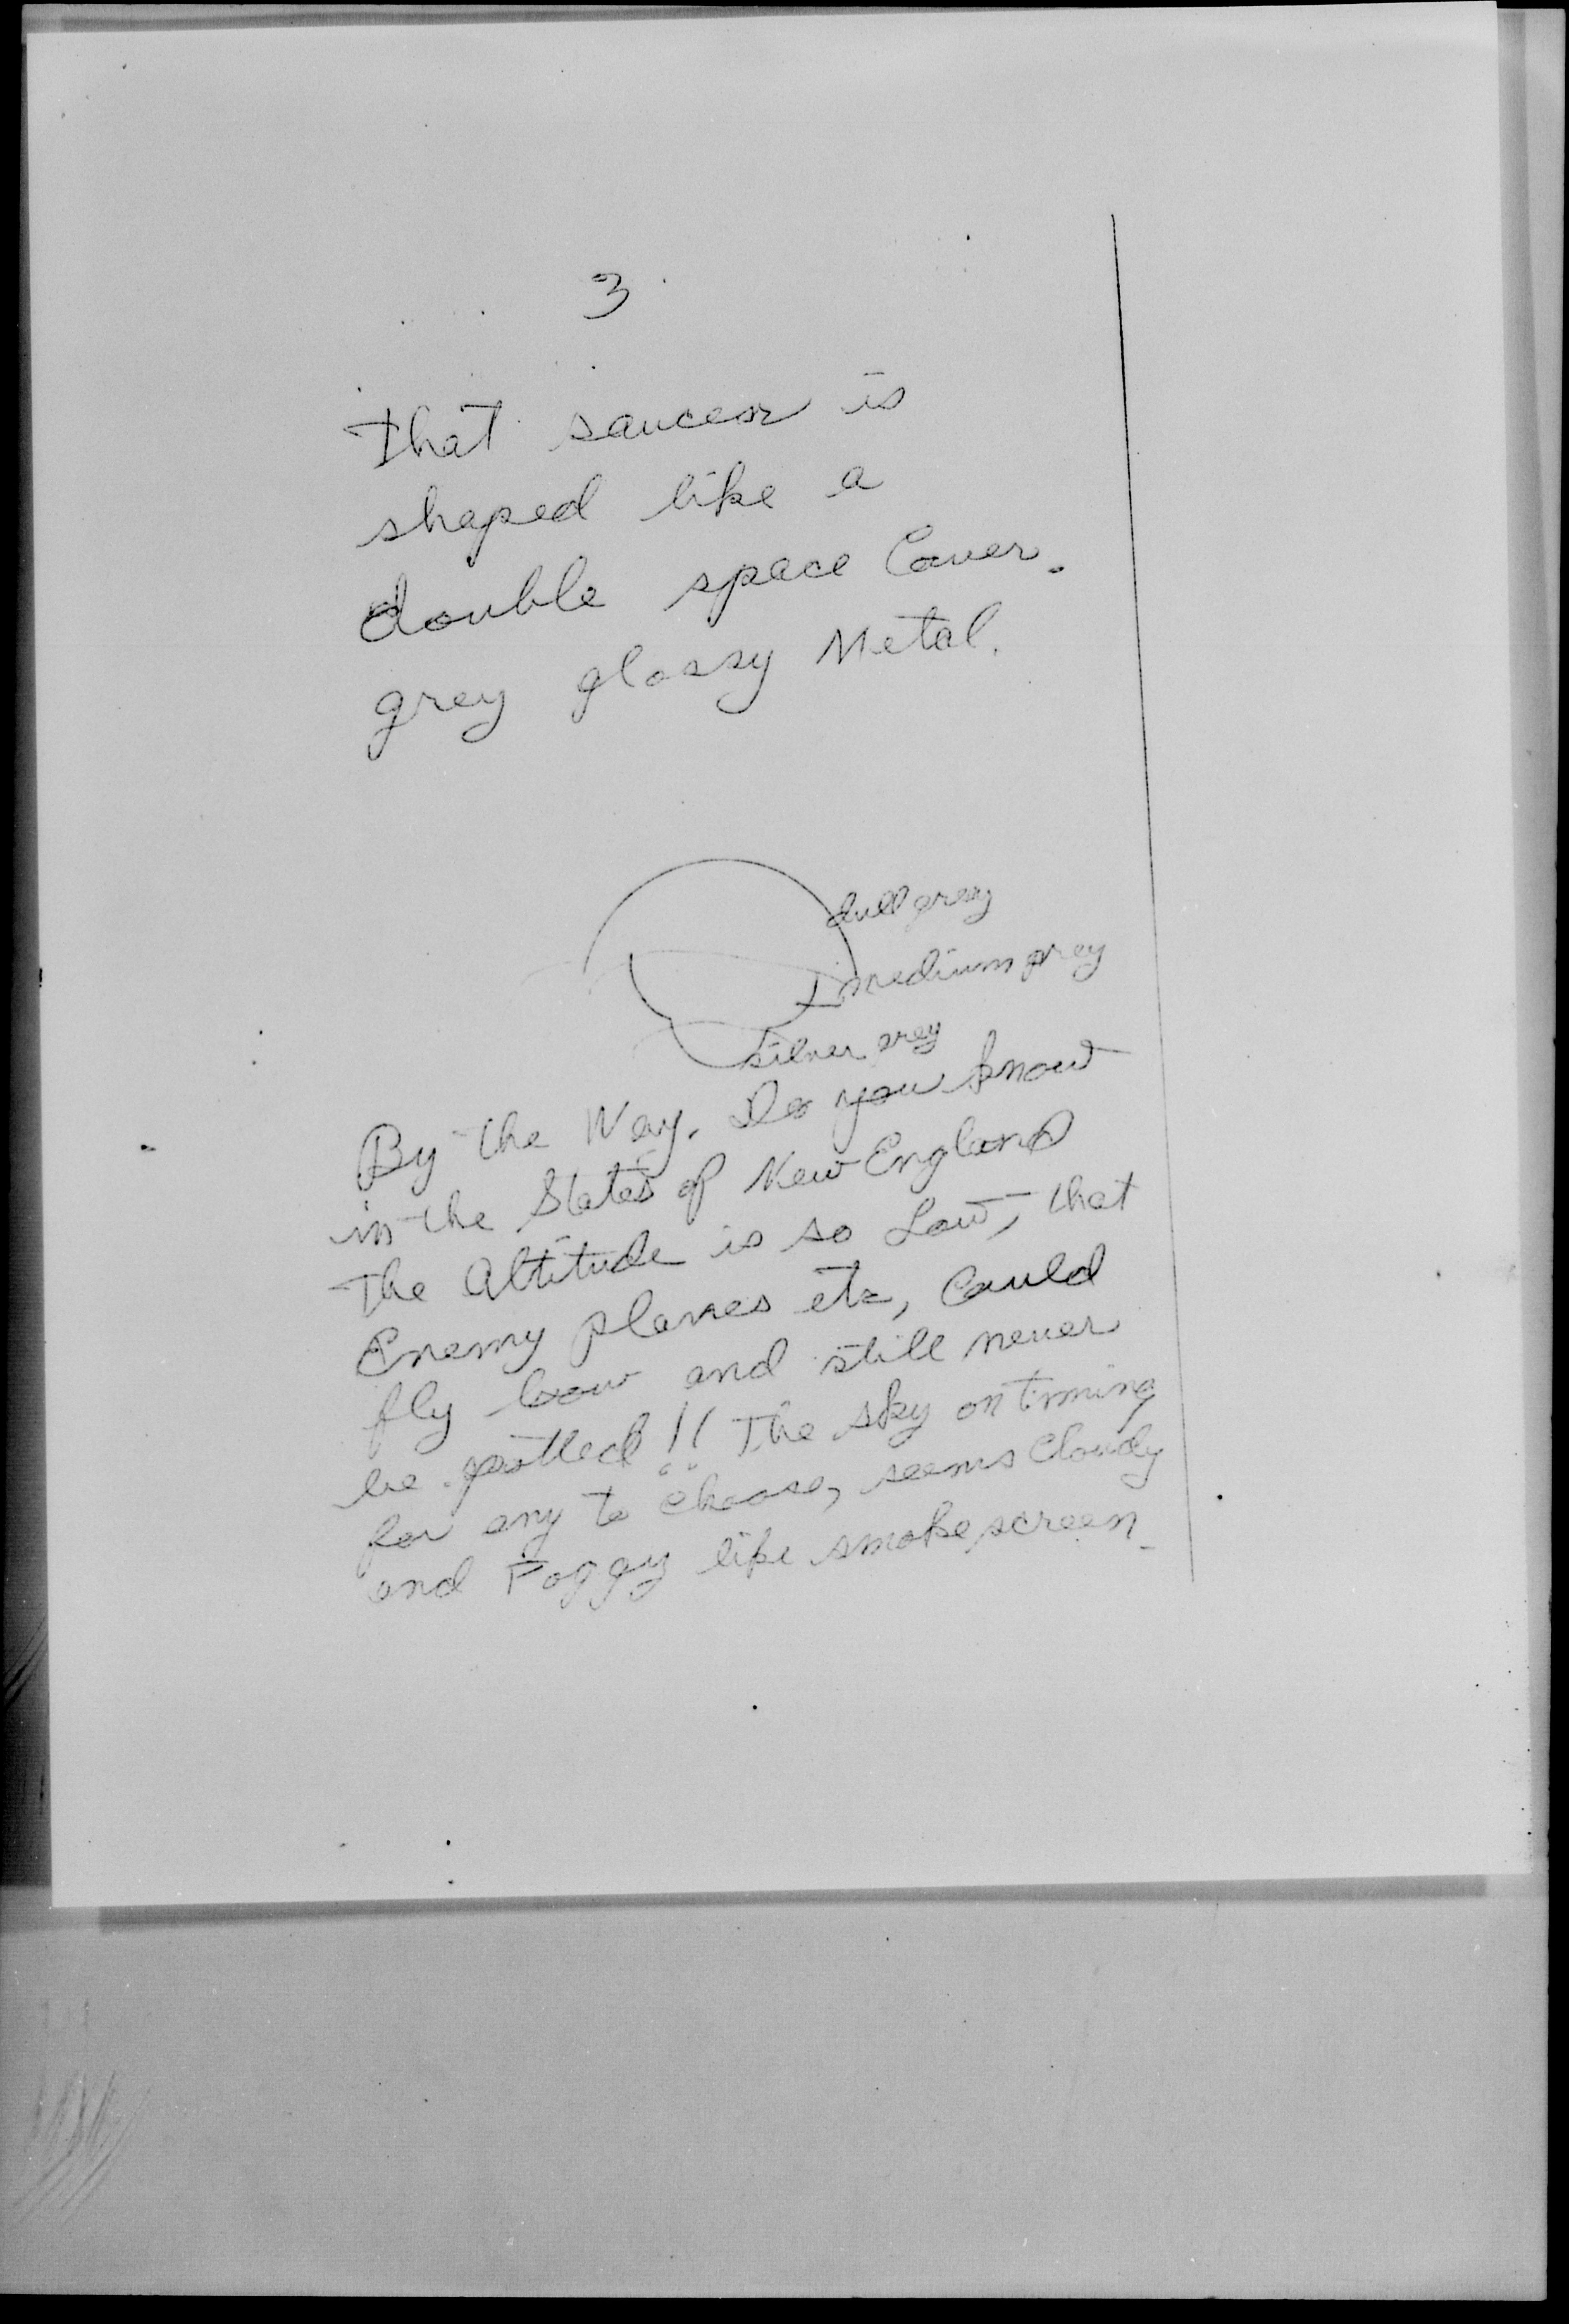 3
that saucer is
shaped like a
double space Cover.
grey glossy Metal.
dull grey
medium grey
silver grey
By the Way. Do you know
in the States of New England
The Altitude is so Low, that
Enemy planes etc, Could
fly low and still never
be spotted!! The sky on timing
for any to choose, seems Cloudy
and Foggy like smoke screen